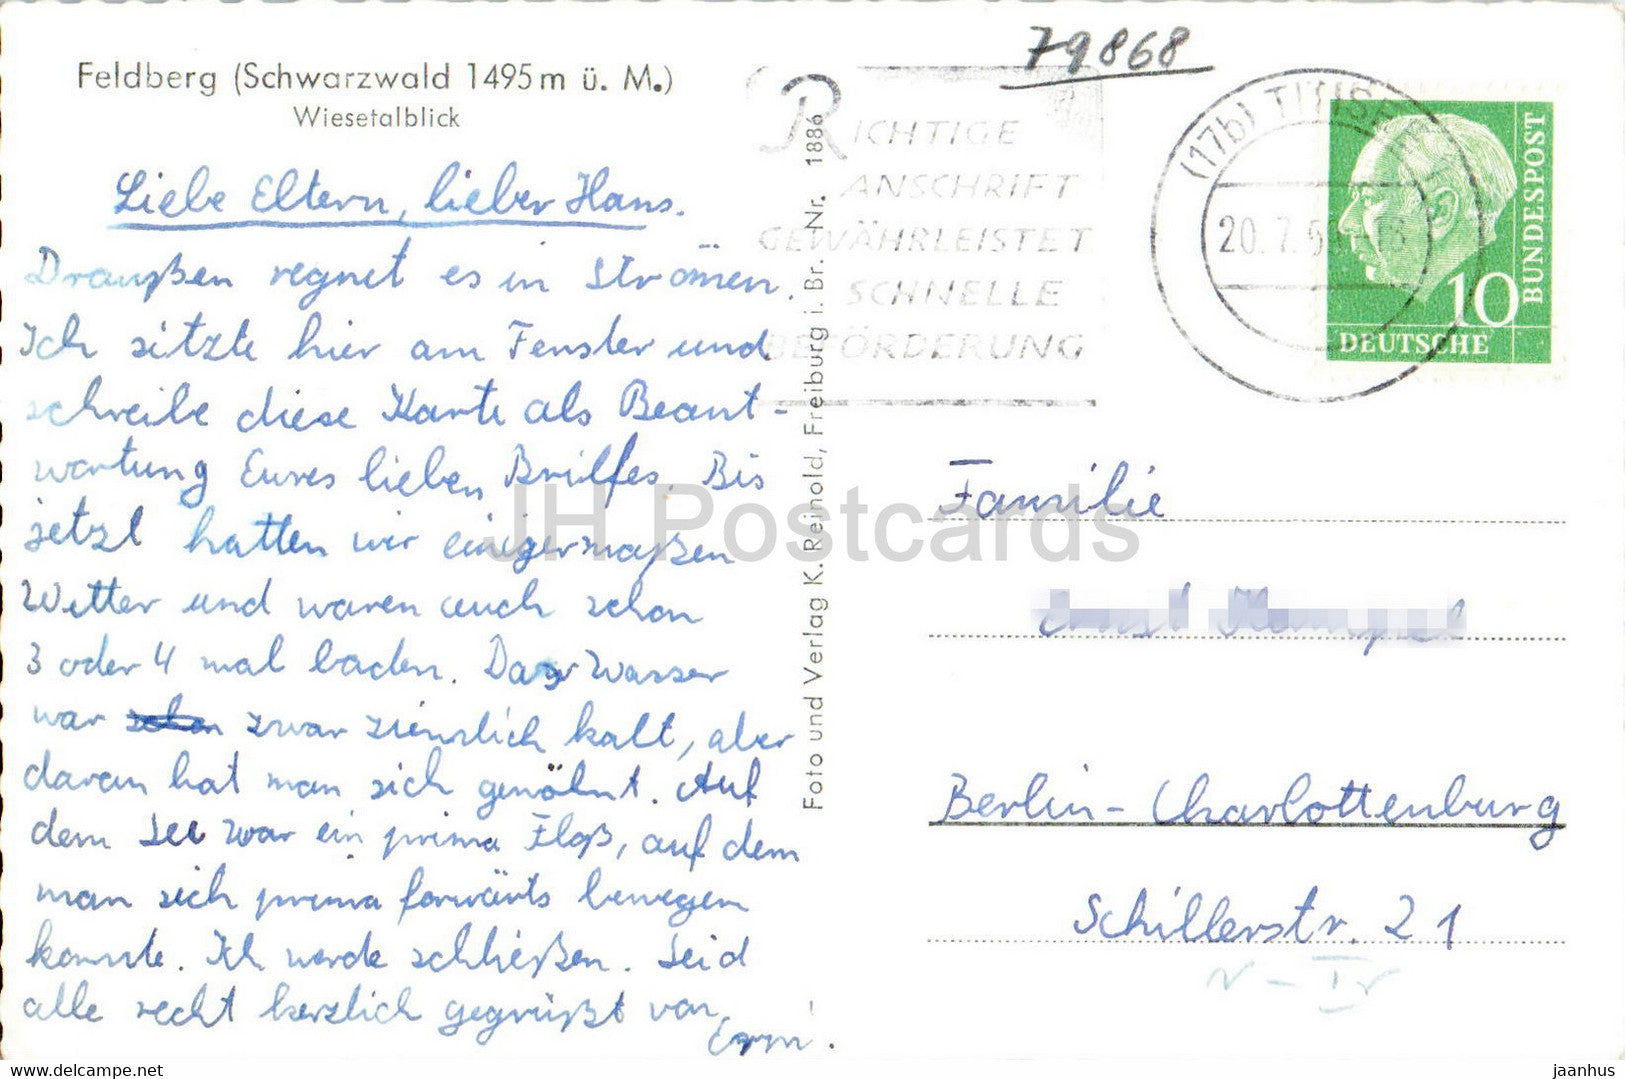 79868
Feldberg (Schwarzwald 1495 m ü. M.)
Wiesetalblick
Liebe Eltern, lieber Hans.
Draußen regnet es in Strömen.
Ich sitzte hier am Fenster und
schreibe diese Karte als Beant-
wortung Eures lieben Briefes. Bis
jetzt hatten wir einigermaßen
Wetter und waren auch schon
3 oder 4 mal baden. Das Wasser
war zwar ziemlich kalt, aber
daran hat man sich gewöhnt. Auf
dem See war ein prima Floß, auf dem
man sich prima forwärts bewegen
konnte. Ich werde schließen. Seid
alle recht herzlich gegrüßt von
Foto und Verlag K. Reinold, Freiburg i. Br. - Nr. 1886
RICHTIGE
ANSCHRIFT
GEWÄHRLEISTET
SCHNELLE
BEFÖRDERUNG
(17b) TITISEE
20. 7. 5
10
DEUTSCHE
BUNDESPOST
Familie
Berlin-Charlottenburg
Schillerstr. 21
JH Postcards
https://www.delcampe.net
jaanhus